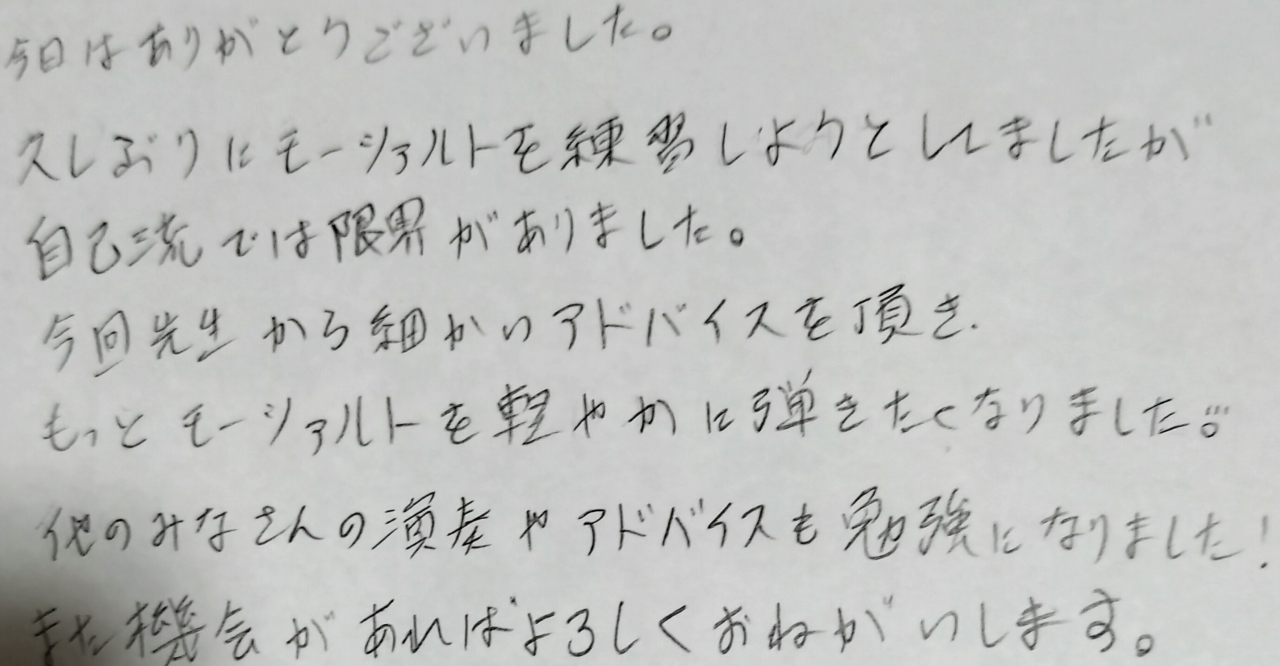 今日はありがとうございました。
久しぶりにモーツァルトを練習しようとしてましたが
自己流では限界がありました。
今回先生から細かいアドバイスを頂き、
もっとモーツァルトを軽やかに弾きたくなりました。
他のみなさんの演奏やアドバイスも勉強になりました!
また機会があればよろしくおねがいします。